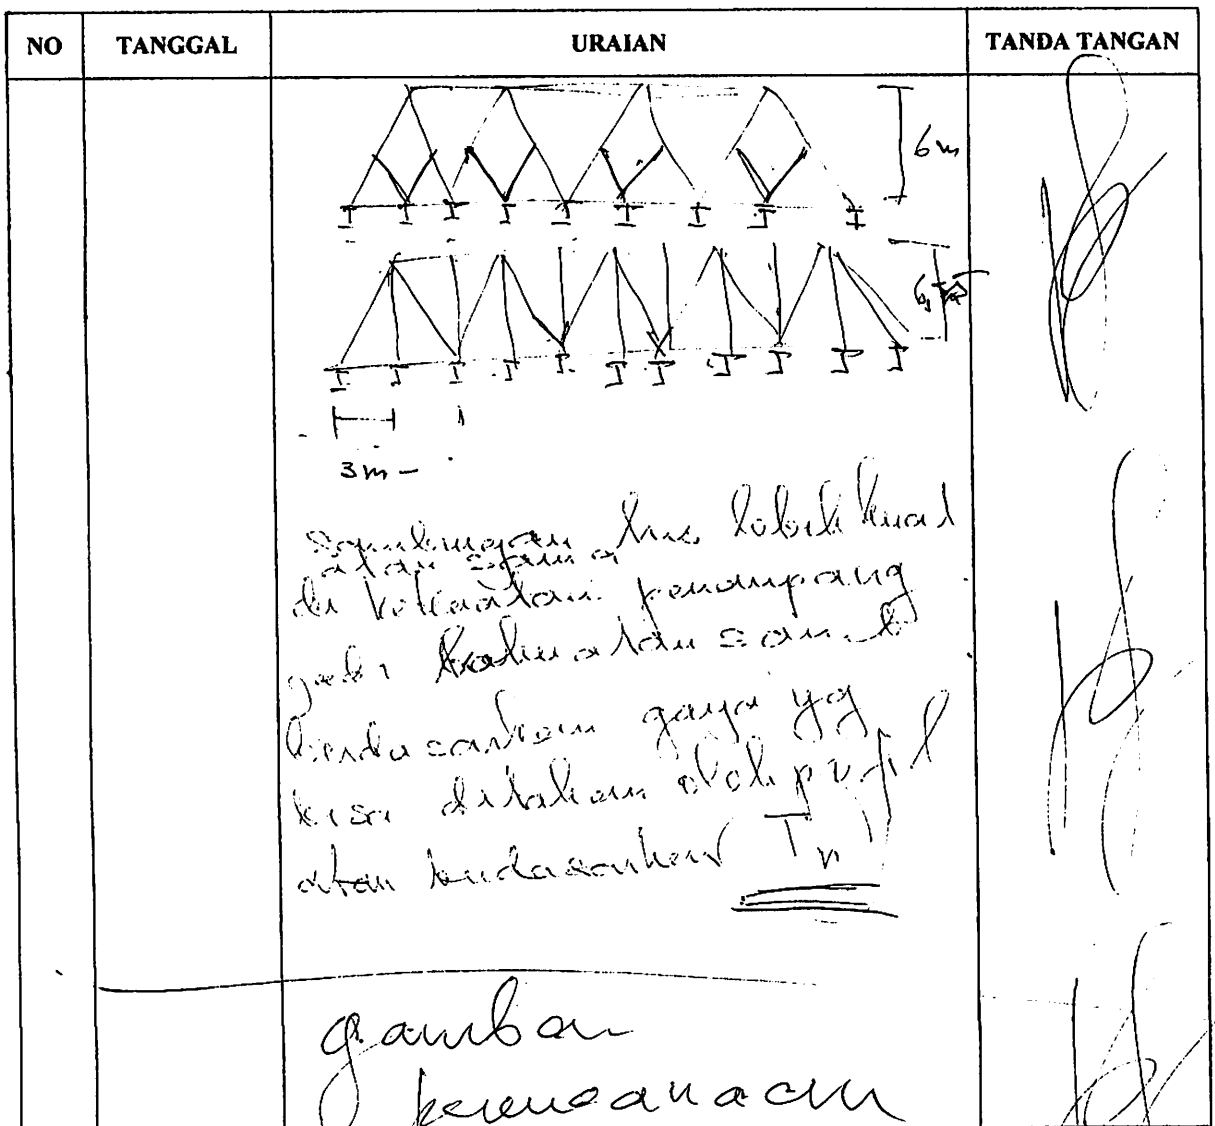 NO TANGGAL URAIAN TANDA TANGAN
6m
3m
Sambungan hrs lebih kuat
atau sama
dr kekuatan penampang
jadi kekuatan samb
berdasarkan gaya yg
bisa ditahan oleh profil
atau berdasarkan Tn
gambar
perencanaan